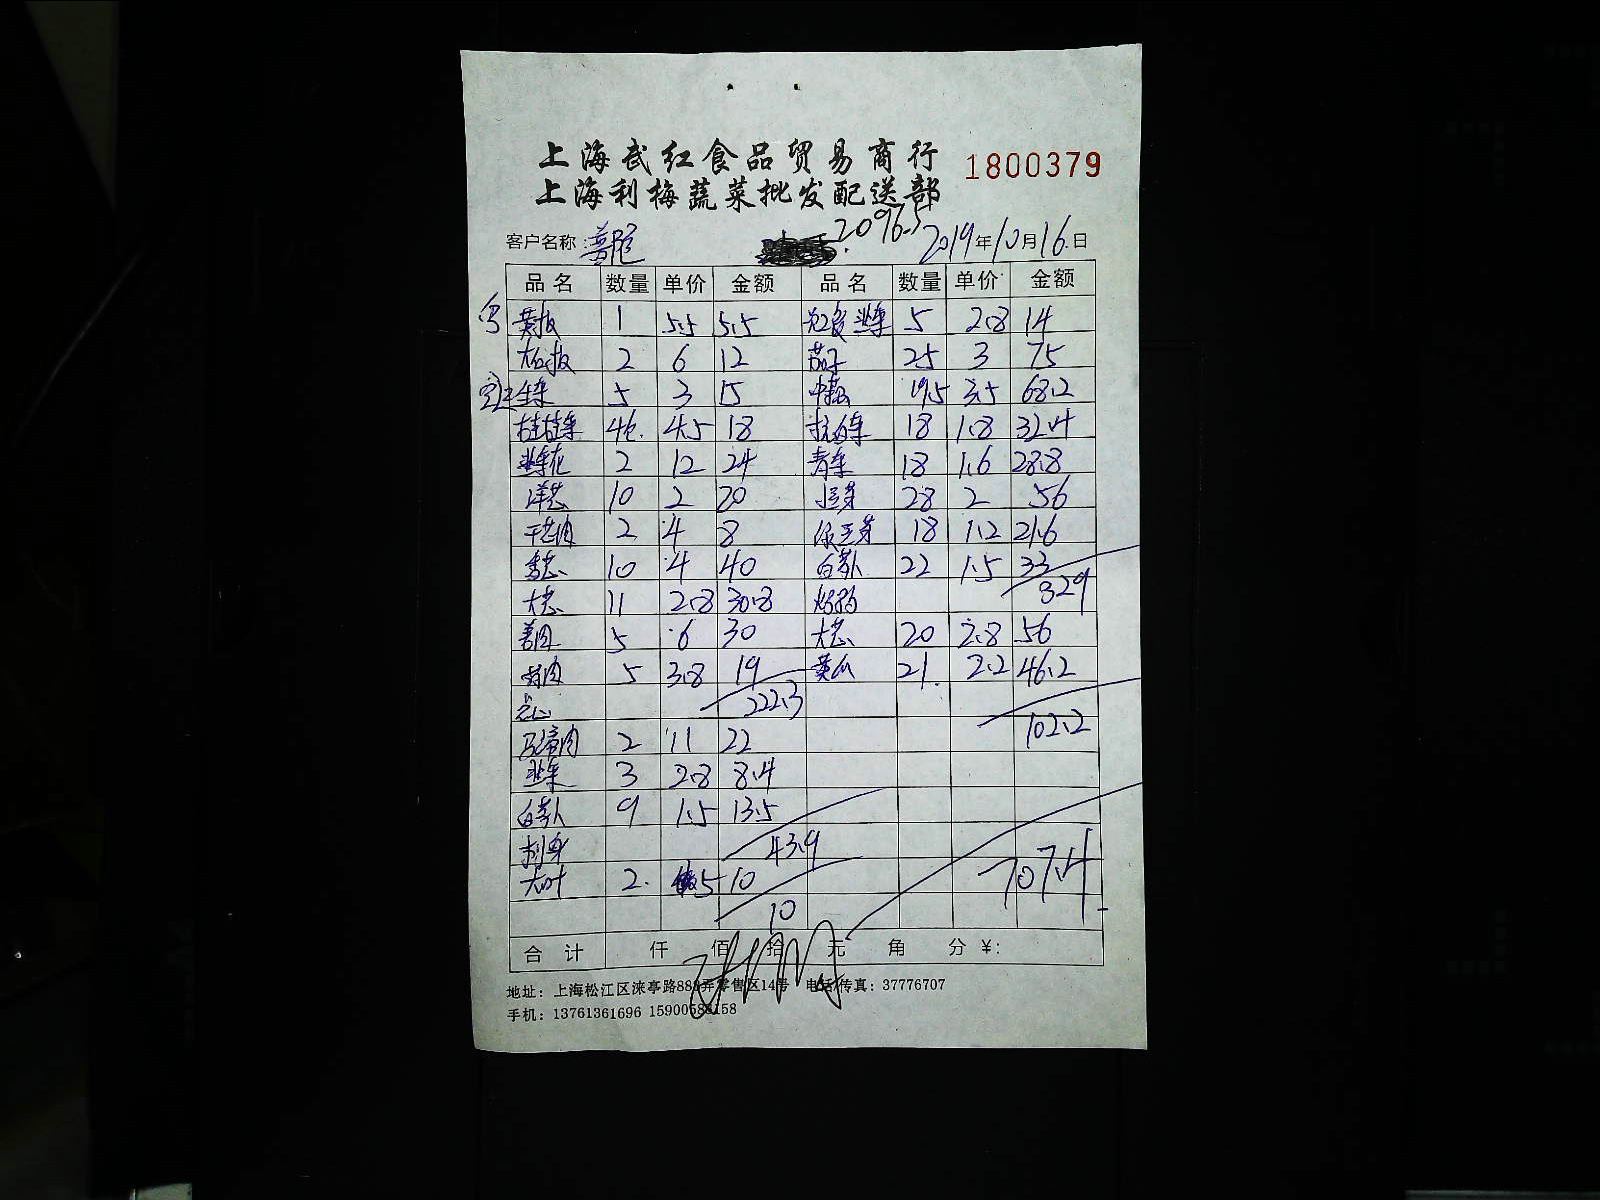 上海武红食品贸易商行
1800379
上海利梅蔬菜批发配送部
2096.5
客户名称: 2019年10月16日
品名 数量 单价 金额 品名 数量 单价 金额
1 5.5 5.5 韭菜 5 2.8 14
2 6 12 茄子 25 3 75
生菜 5 3 15 19.5 3.5 68.2
4.5 18 18 1.8 32.4
韭菜花 2 12 24 青菜 18 1.6 28.8
洋葱 10 2 20 28 2 56
2 4 8 绿豆芽 18 1.2 21.6
香葱 10 4 40 白萝卜 22 1.5 33
329
大葱 11 2.8 30.8
姜肉 5 6 30 大葱 20 2.8 56
蒜肉 5 3.8 19 黄瓜 21 2.2 46.2
点心 222.3
102.2
马蹄肉 2 11 22
韭菜 3 2.8 8.4
白萝卜 9 1.5 13.5
刺身 43.9
大叶 2 5 10
707.4
10
合计 仟 佰 拾 元 角 分 ¥:
地址: 上海松江区涞亭路888弄零售区14号 电话/传真: 37776707
手机: 13761361696 15900588158